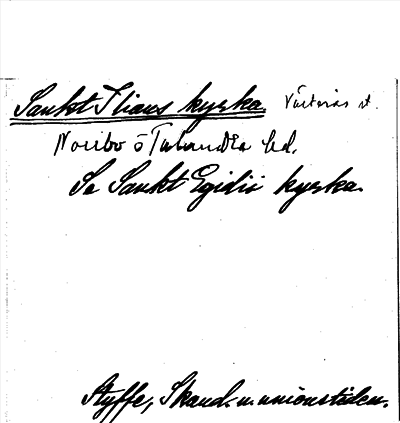 Sankt Ilians kyrka. Västerås st.
Norrbo o Tuhundra hd.
Se Sankt Egidii kyrka.
Styffe, Skand. u. unionstiden.